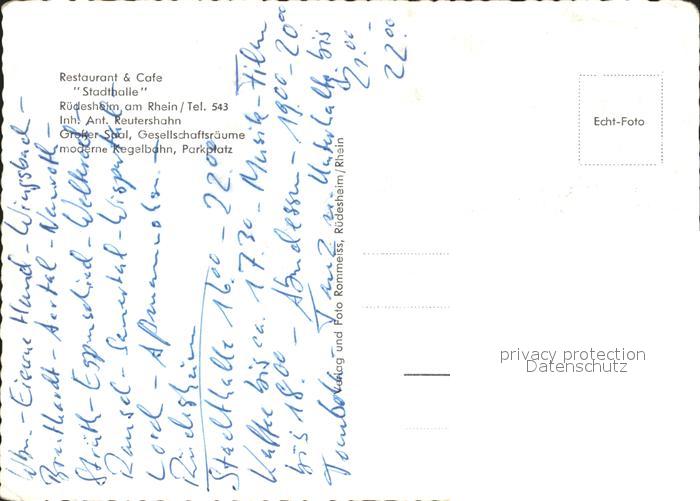 Restaurant & Cafe
"Stadthalle"
Rüdesheim am Rhein/Tel. 543
Inh. Ant. Reutershahn
Großer Saal, Gesellschaftsräume
moderne Kegelbahn, Parkplatz
Echt-Foto
Verlag und Foto Rommeiss, Rüdesheim/Rhein
Wbn.-Eiserne Hand-Wingsbach-
Breithardt-Aartal-Nauroth-
Strüth-Espenschied-Welterod-
Ransel-Sauertal-Wispertal-
Lorch-Aßmannshausen-
Rüdesheim
Stadthalle 16.00-22.00
Kaffee bis ca. 17.30-Musik-Film
bis 18.00-Abendessen-19.00-20.00
Tombola-Tanz u. Unterhaltg. bis
21.00-
22.00
privacy protection
Datenschutz